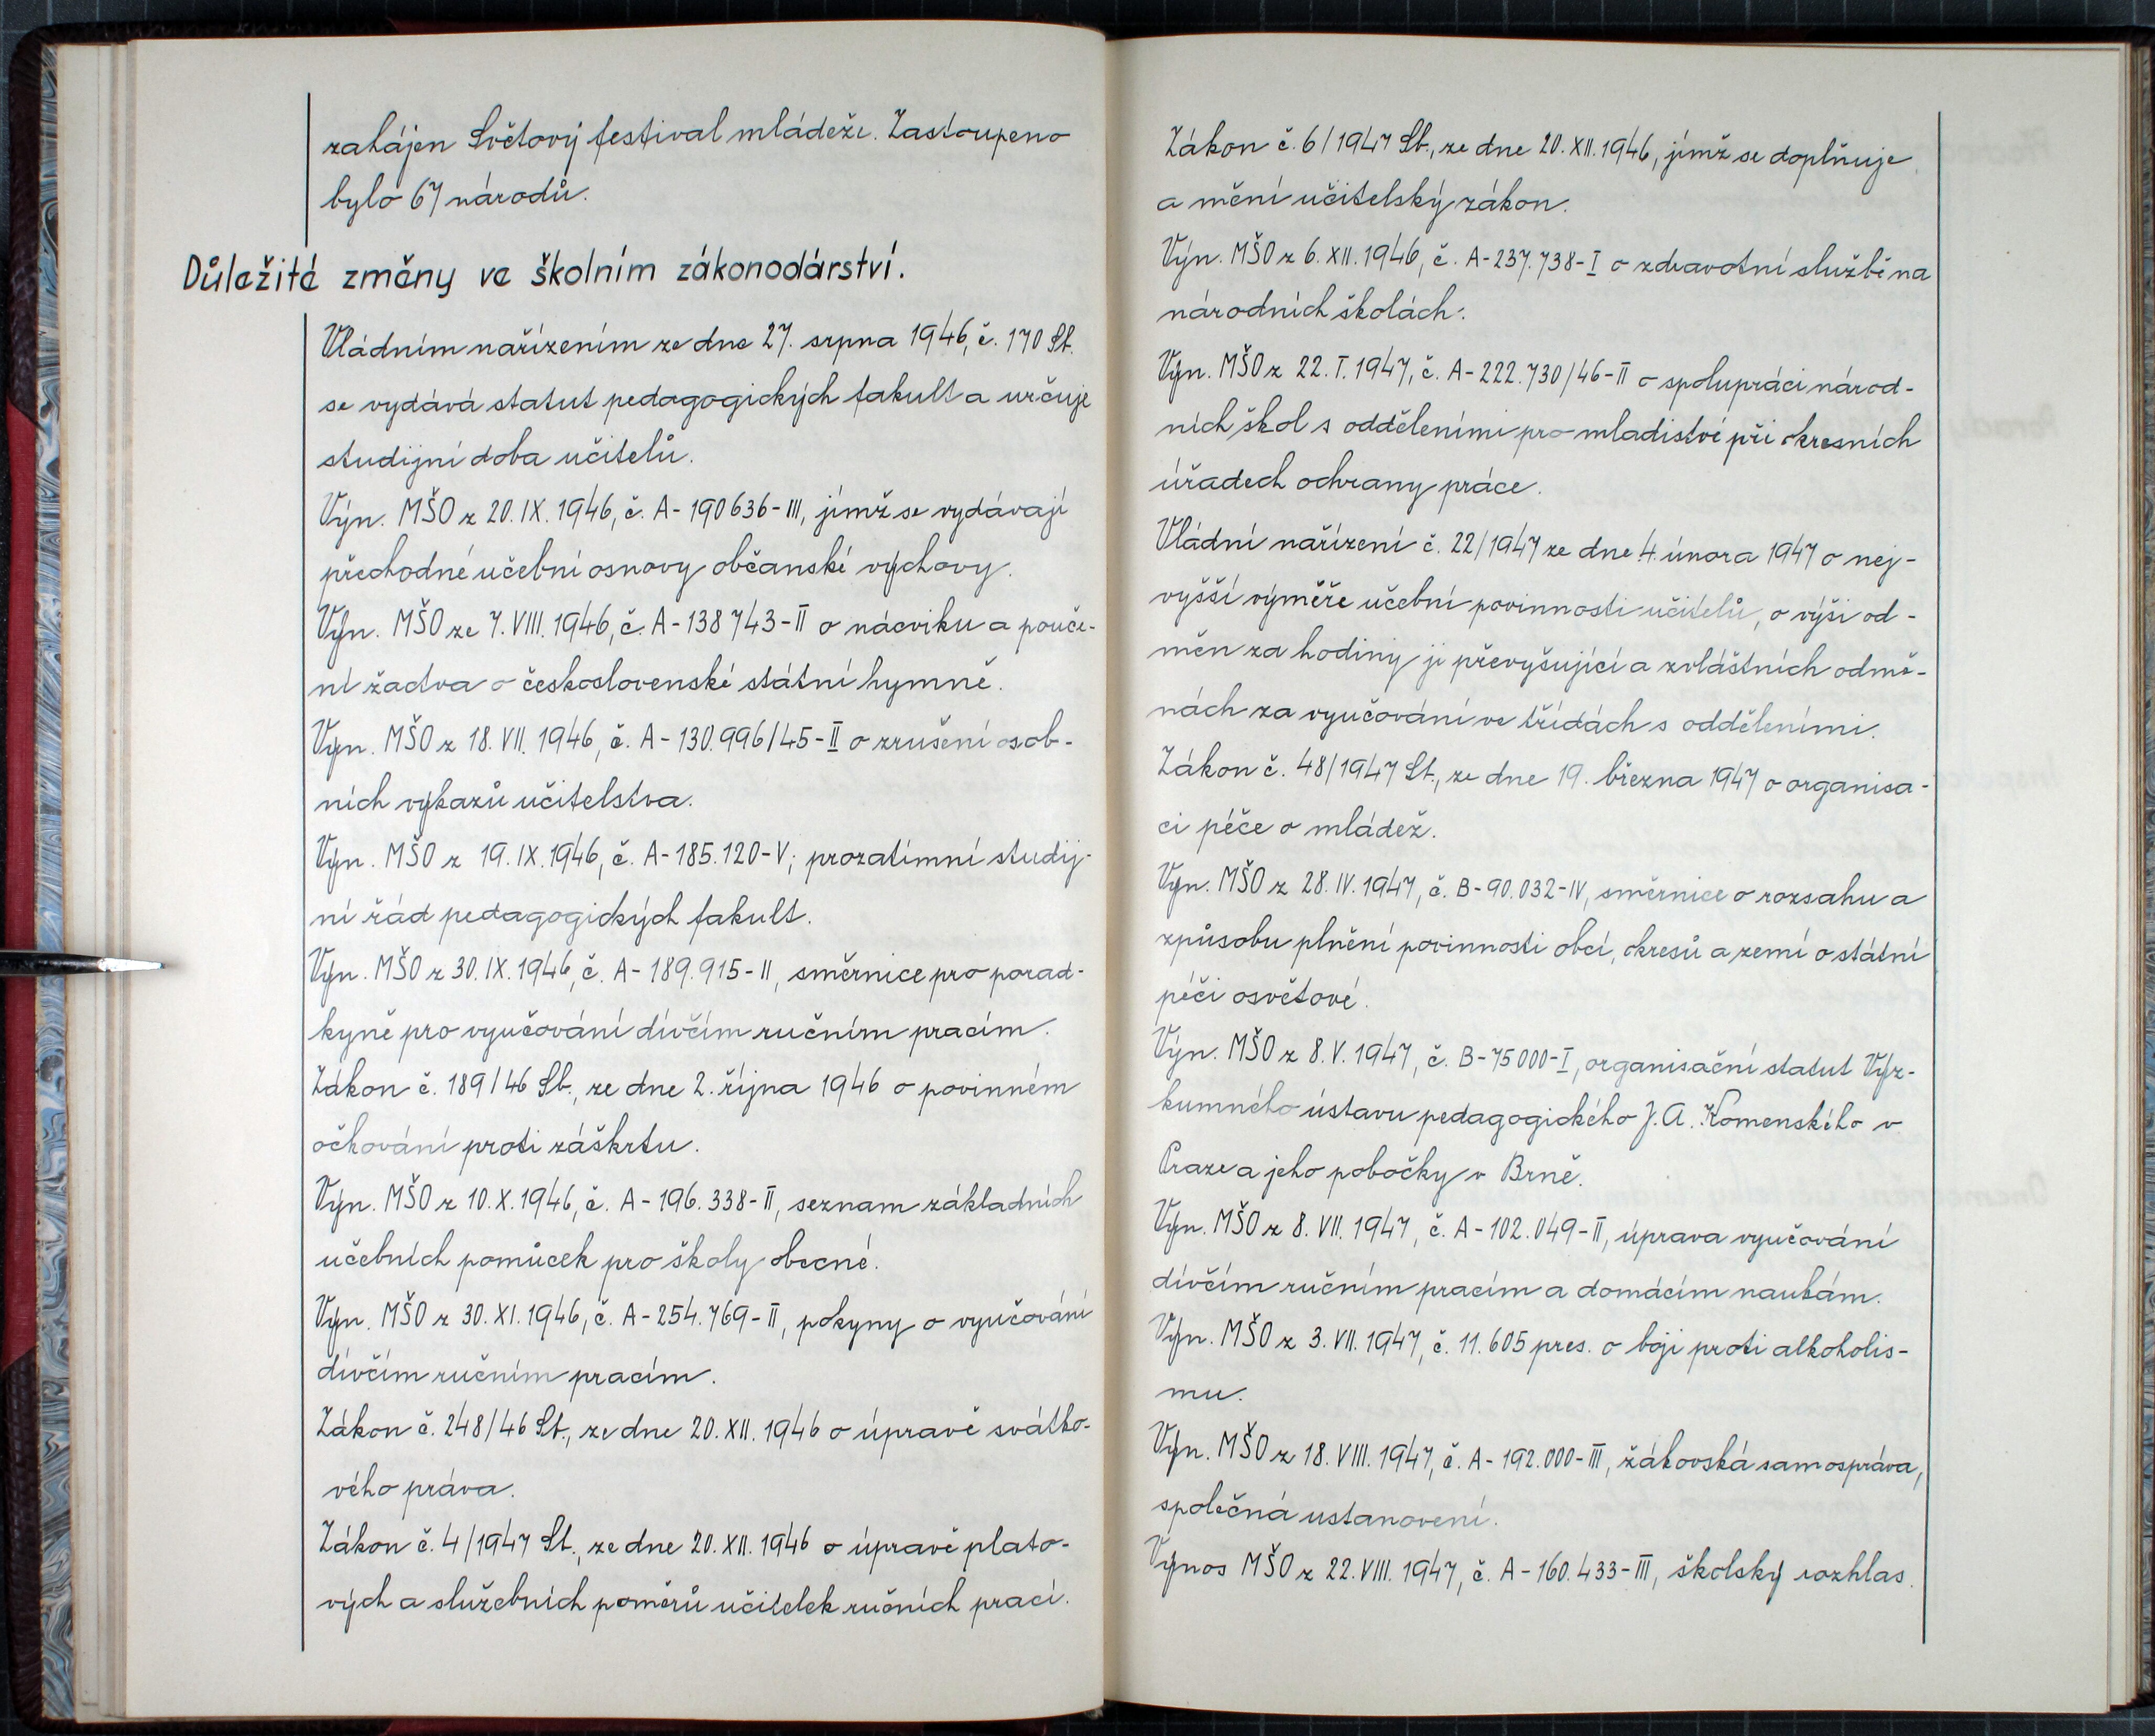 zahájen Světový festival mládeže. Zastoupeno
bylo 67 národů.
Důležité změny ve školním zákonodárství.
Vládním nařízením ze dne 27. srpna 1946, č. 170 Sb.
se vydává statut pedagogických fakult a určuje
studijní doba učitelů.
Výn. MŠO z 20. IX. 1946, č. A-190636-III, jímž se vydávají
přechodné učební osnovy občanské výchovy.
Výn. MŠO ze 7. VIII. 1946, č. A-138743-II o nácviku a pouče-
ní žactva o československé státní hymně.
Výn. MŠO z 18. VII. 1946, č. A-130.996/45-II o zrušení osob-
ních výkazů učitelstva.
Výn. MŠO z 19. IX. 1946, č. A-185.120-V; prozatímní studij-
ní řád pedagogických fakult.
Výn. MŠO z 30. IX. 1946, č. A-189.915-II, směrnice pro porad-
kyně pro vyučování dívčím ručním pracím.
Zákon č. 189/46 Sb., ze dne 2. října 1946 o povinném
očkování proti záškrtu.
Výn. MŠO z 10. X. 1946, č. A-196.338-II, seznam základních
učebních pomůcek pro školy obecné.
Výn. MŠO z 30. XI. 1946, č. A-254.769-II, pokyny o vyučování
dívčím ručním pracím.
Zákon č. 248/46 Sb., ze dne 20. XII. 1946 o úpravě svátko-
vého práva.
Zákon č. 4/1947 Sb., ze dne 20. XII. 1946 o úpravě plato-
vých a služebních poměrů učitelek ručních prací.
Zákon č. 6/1947 Sb., ze dne 20. XII. 1946, jímž se doplňuje
a mění učitelský zákon.
Výn. MŠO z 6. XII. 1946, č. A-237.738-I o zdravotní službě na
národních školách.
Výn. MŠO z 22. I. 1947, č. A-222.730/46-II o spolupráci národ-
ních škol s odděleními pro mladistvé při okresních
úřadech ochrany práce.
Vládní nařízení č. 22/1947 ze dne 4. února 1947 o nej-
vyšší výměře učební povinnosti učitelů, o výši od-
měn za hodiny ji převyšující a zvláštních odmě-
nách za vyučování ve třídách s odděleními.
Zákon č. 48/1947 Sb., ze dne 19. března 1947 o organisa-
ci péče o mládež.
Výn. MŠO z 28. IV. 1947, č. B-90.032-IV, směrnice o rozsahu a
způsobu plnění povinnosti obcí, okresů a zemí o státní
péči osvětové.
Výn. MŠO z 8. V. 1947, č. B-75000-I, organisační statut Výz-
kumného ústavu pedagogického J. A. Komenského v
Praze a jeho pobočky v Brně.
Výn. MŠO z 8. VII. 1947, č. A-102.049-II, úprava vyučování
dívčím ručním pracím a domácím naukám.
Výn. MŠO z 3. VII. 1947, č. 11.605 pres. o boji proti alkoholis-
mu.
Výn. MŠO z 18. VIII. 1947, č. A-192.000-III, žákovská samospráva,
společná ustanovení.
Výnos MŠO z 22. VIII. 1947, č. A-160.433-III, školský rozhlas.